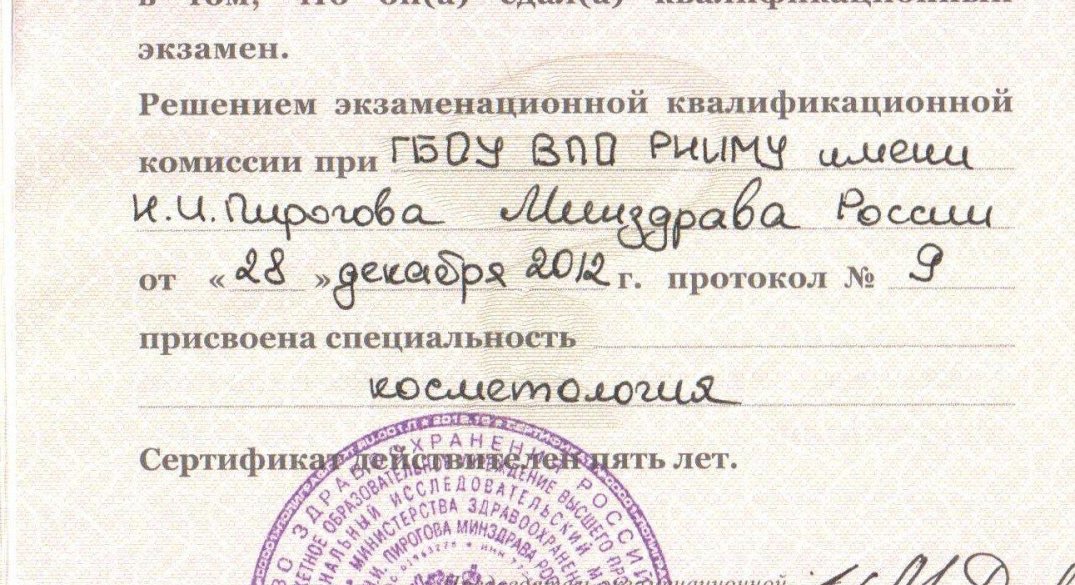 в том, что он(а) сдал(а) квалификационный
экзамен.
Решением экзаменационной квалификационной
комиссии при ГБОУ ВПО РНИМУ имени
Н.И.Пирогова Минздрава России
от « 28 » декабря 2012 г. протокол № 9
присвоена специальность
косметология
Сертификат действителен пять лет.
ЗДРАВООХРАНЕНИЯ РОССИ
ОБРАЗОВАТЕЛЬНОЕ УЧРЕЖДЕНИЕ ВЫСШЕГО
ИССЛЕДОВАТЕЛЬСКИЙ
МИНИСТЕРСТВА ЗДРАВООХРАНЕН
Н.И. ПИРОГОВА МИНЗДРАВА РОС